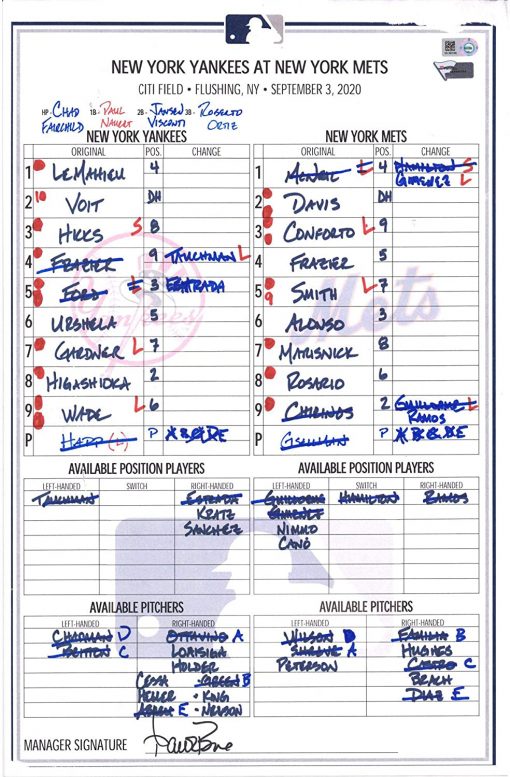 NEW YORK YANKEES AT NEW YORK METS
CITI FIELD • FLUSHING, NY • SEPTEMBER 3, 2020
HP- CHAD FAIRCHILD 1B- PAUL NAUERT 2B- JANSEN VISCONTI 3B- ROBERTO ORTIZ
NEW YORK YANKEES
ORIGINAL POS. CHANGE
1 LEMAHIEU 4
2 VOIT DH
3 HICKS S 8
4 FRAZIER 9 TAUCHMAN L
5 FORD L 3 ESTRADA
6 URSHELA 5
7 GARDNER L 7
8 HIGASHIOKA 2
9 WADE L 6
P HAPP (L) P A B C D E
AVAILABLE POSITION PLAYERS
LEFT-HANDED SWITCH RIGHT-HANDED
TAUCHMAN ESTRADA
KRATZ
SANCHEZ
AVAILABLE PITCHERS
LEFT-HANDED RIGHT-HANDED
CHAPMAN D OTTAVINO A
BRITTON C LOAISIGA
HOLDER
CESSA GREEN B
HELLER • KING
ABREU E • NELSON
NEW YORK METS
ORIGINAL POS. CHANGE
1 MCNEIL L 4 HAMILTON S
GIMENEZ L
2 DAVIS DH
3 CONFORTO L 9
4 FRAZIER 5
5 SMITH L 7
6 ALONSO 3
7 MARISNICK 8
8 ROSARIO 6
9 CHIRINOS 2 GUILLORME L
RAMOS
P GSELLMAN P A B C D E
AVAILABLE POSITION PLAYERS
LEFT-HANDED SWITCH RIGHT-HANDED
GUILLORME HAMILTON RAMOS
GIMENEZ
NIMMO
CANÓ
AVAILABLE PITCHERS
LEFT-HANDED RIGHT-HANDED
WILSON D FAMILIA B
SHREVE A HUGHES
PETERSON CASTRO C
BRACH
DIAZ E
MANAGER SIGNATURE